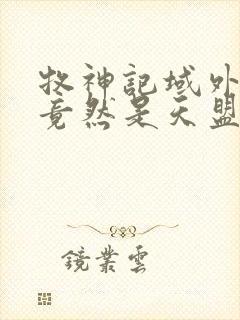 牧神記域外
竟然是天盟
鏡業雲